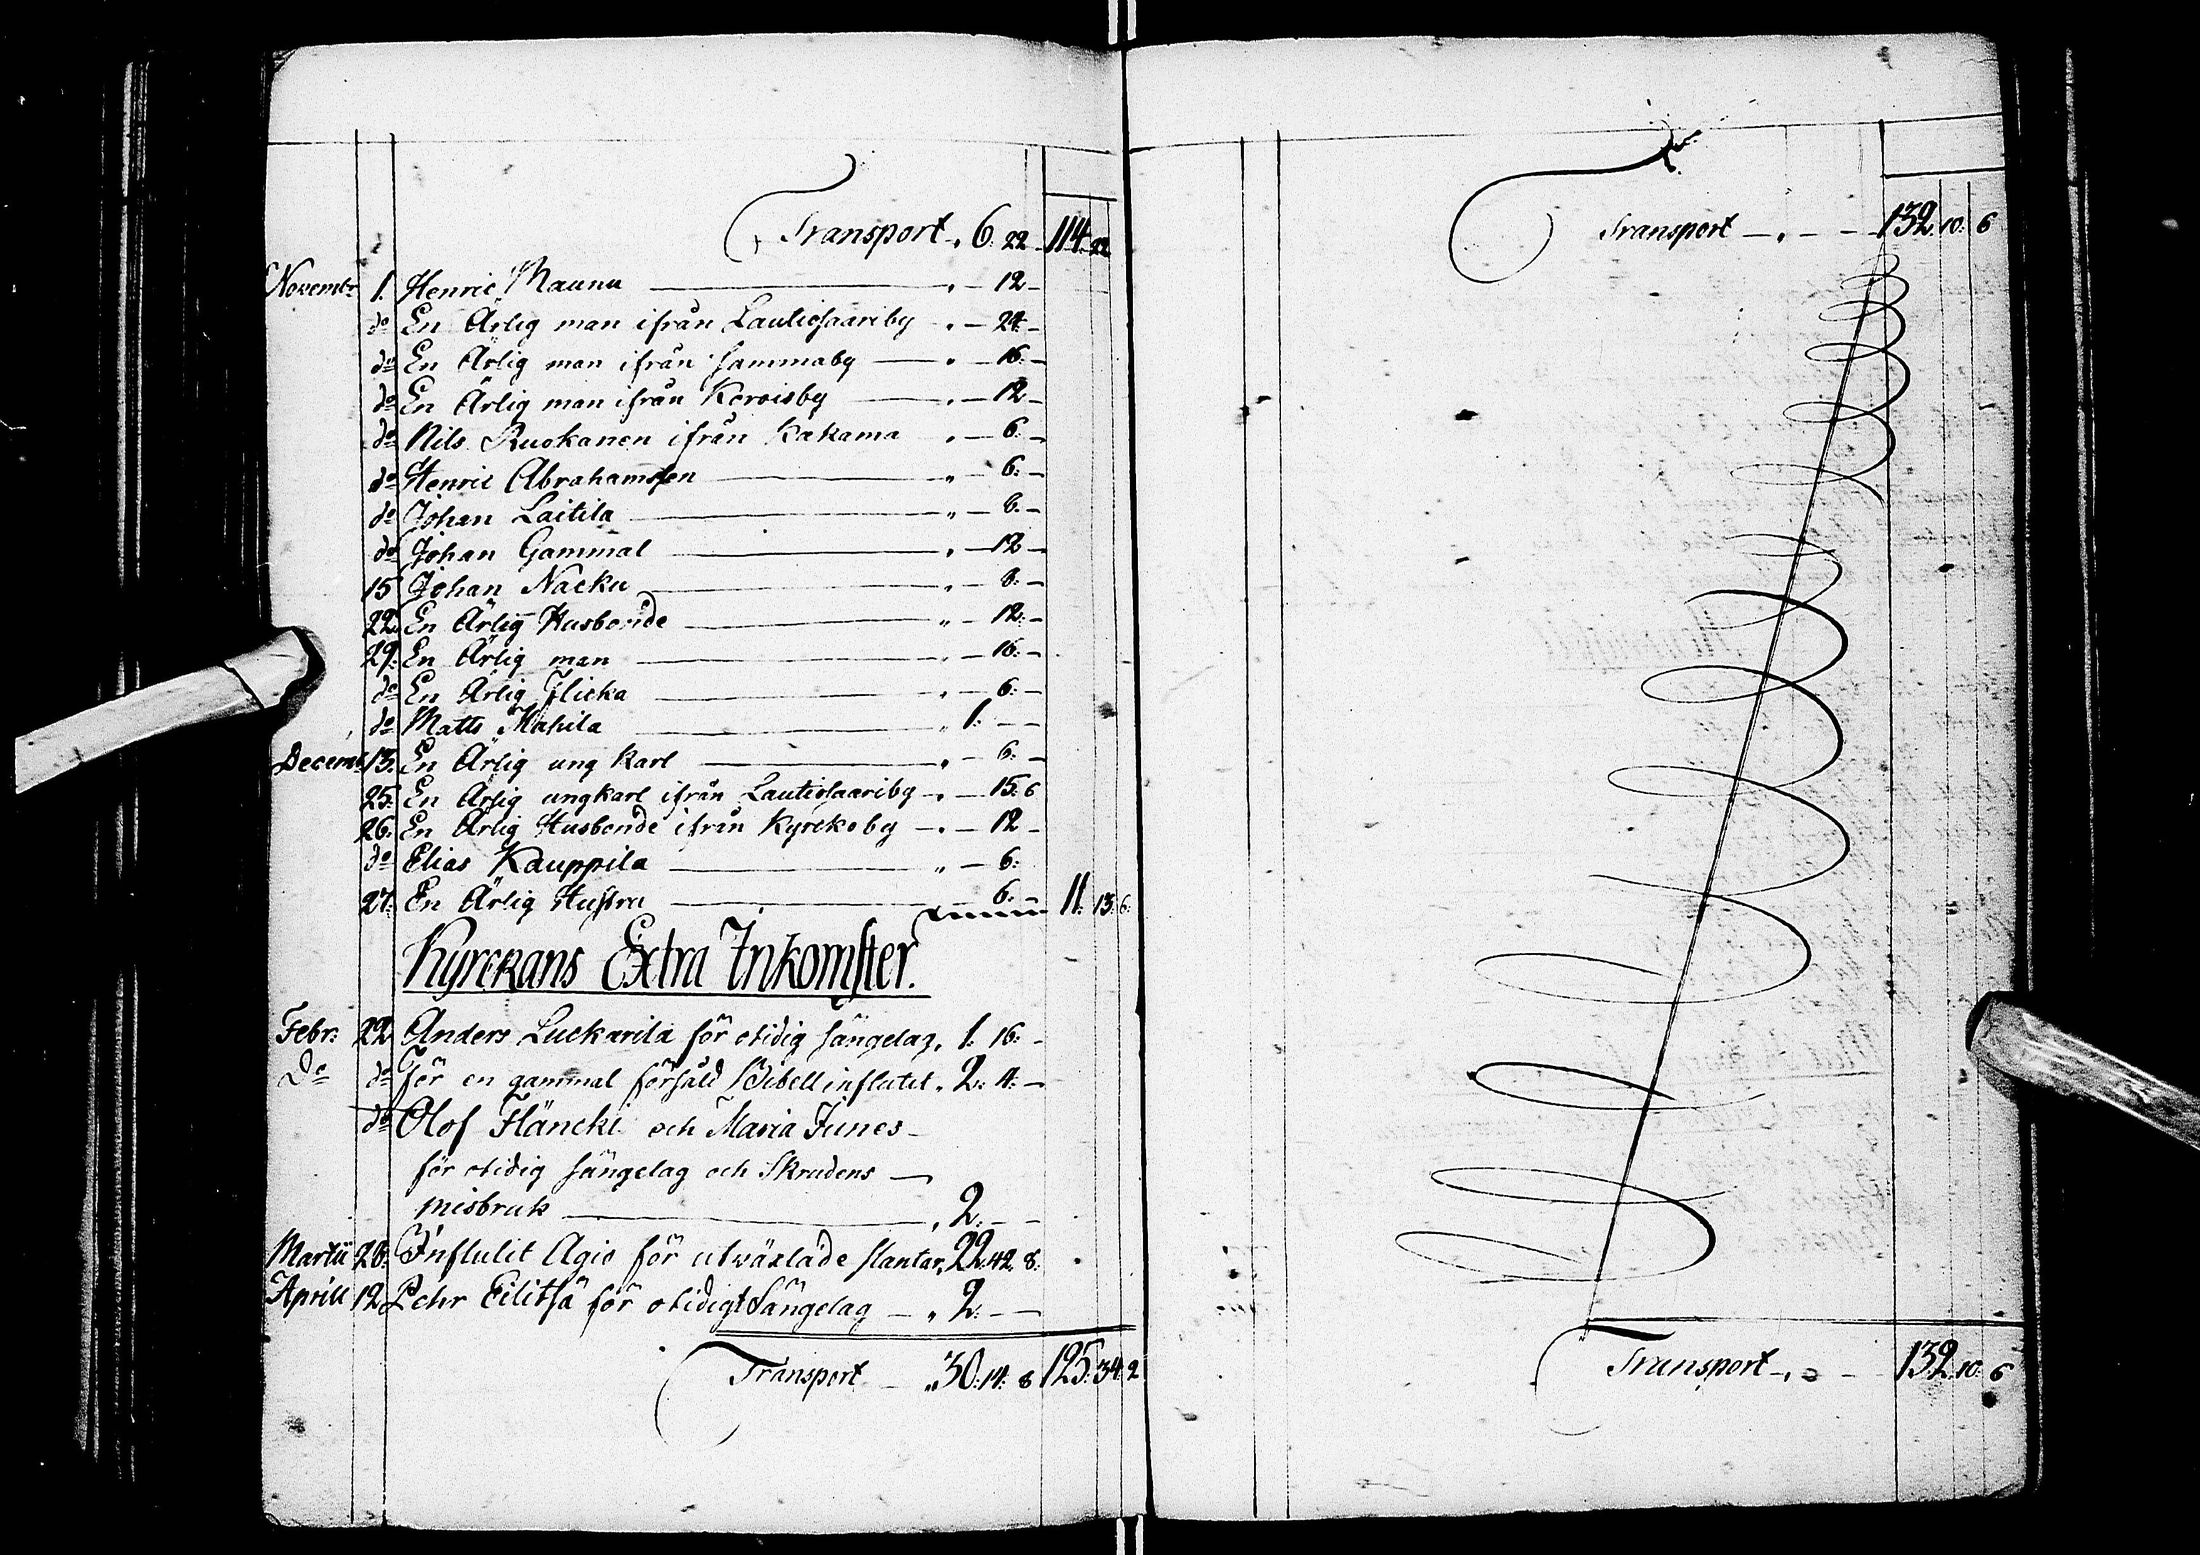 Transport „ 6. 22 114. 22
Novembr 1. Henric Maunu „ — 12 —
do En Ärlig man ifrån Lautiosaariby „ — 24 —
do En Ärlig man ifrån sammaby „ — 16 —
do En Ärlig man ifrån Koroisby „ — 12
do Nils Ruokanen ifrån Kakama „ — 6. —
do Henric Abrahamssen „ — 6. —
do Johan Laitila „ — 8. —
do Johan Gammal „ — 12 —
15 Johan Nacku „ — 8. —
22. En Ärlig Husbonde „ — 12. —
29. En Ärlig man „ — 16. —
do En Ärlig Flicka „ — 6. —
do Matts Mahila „ 1. — —
Decemb. 13. En Ärlig ung Karl „ — 6. —
25. En Ärlig ungkarl ifrån Lautiosaariby „ — 15. 6
26. En Ärlig Husbonde ifrån Kyrckoby „ — 12 —
do Elias Kauppila „ — 6.
27. En Ärlig Hustru 6. — 11. 13. 6.
Kyrckans Extra Inkomster.
Febr. 22 Anders Luckarila för otidig sängelag „ 1. 16. —
Do do För en gammal försåld Bibell influtit „ 2. 4. —
do Olof Fläncki och Maria Junes
för otidig sängelag och Skrudens
misbruk „ 2. — —
Martii 28. Influtit Agio för utwäxlade slantar „ 22. 42. 8.
Aprill 12 Pehr Eilitsä för otidigt Sängelag — „ 2. — —
Transport „ 30. 14. 8 125. 34. 2
Transport — „ — — 132. 10. 6
Transport — „ — — 132. 10. 6